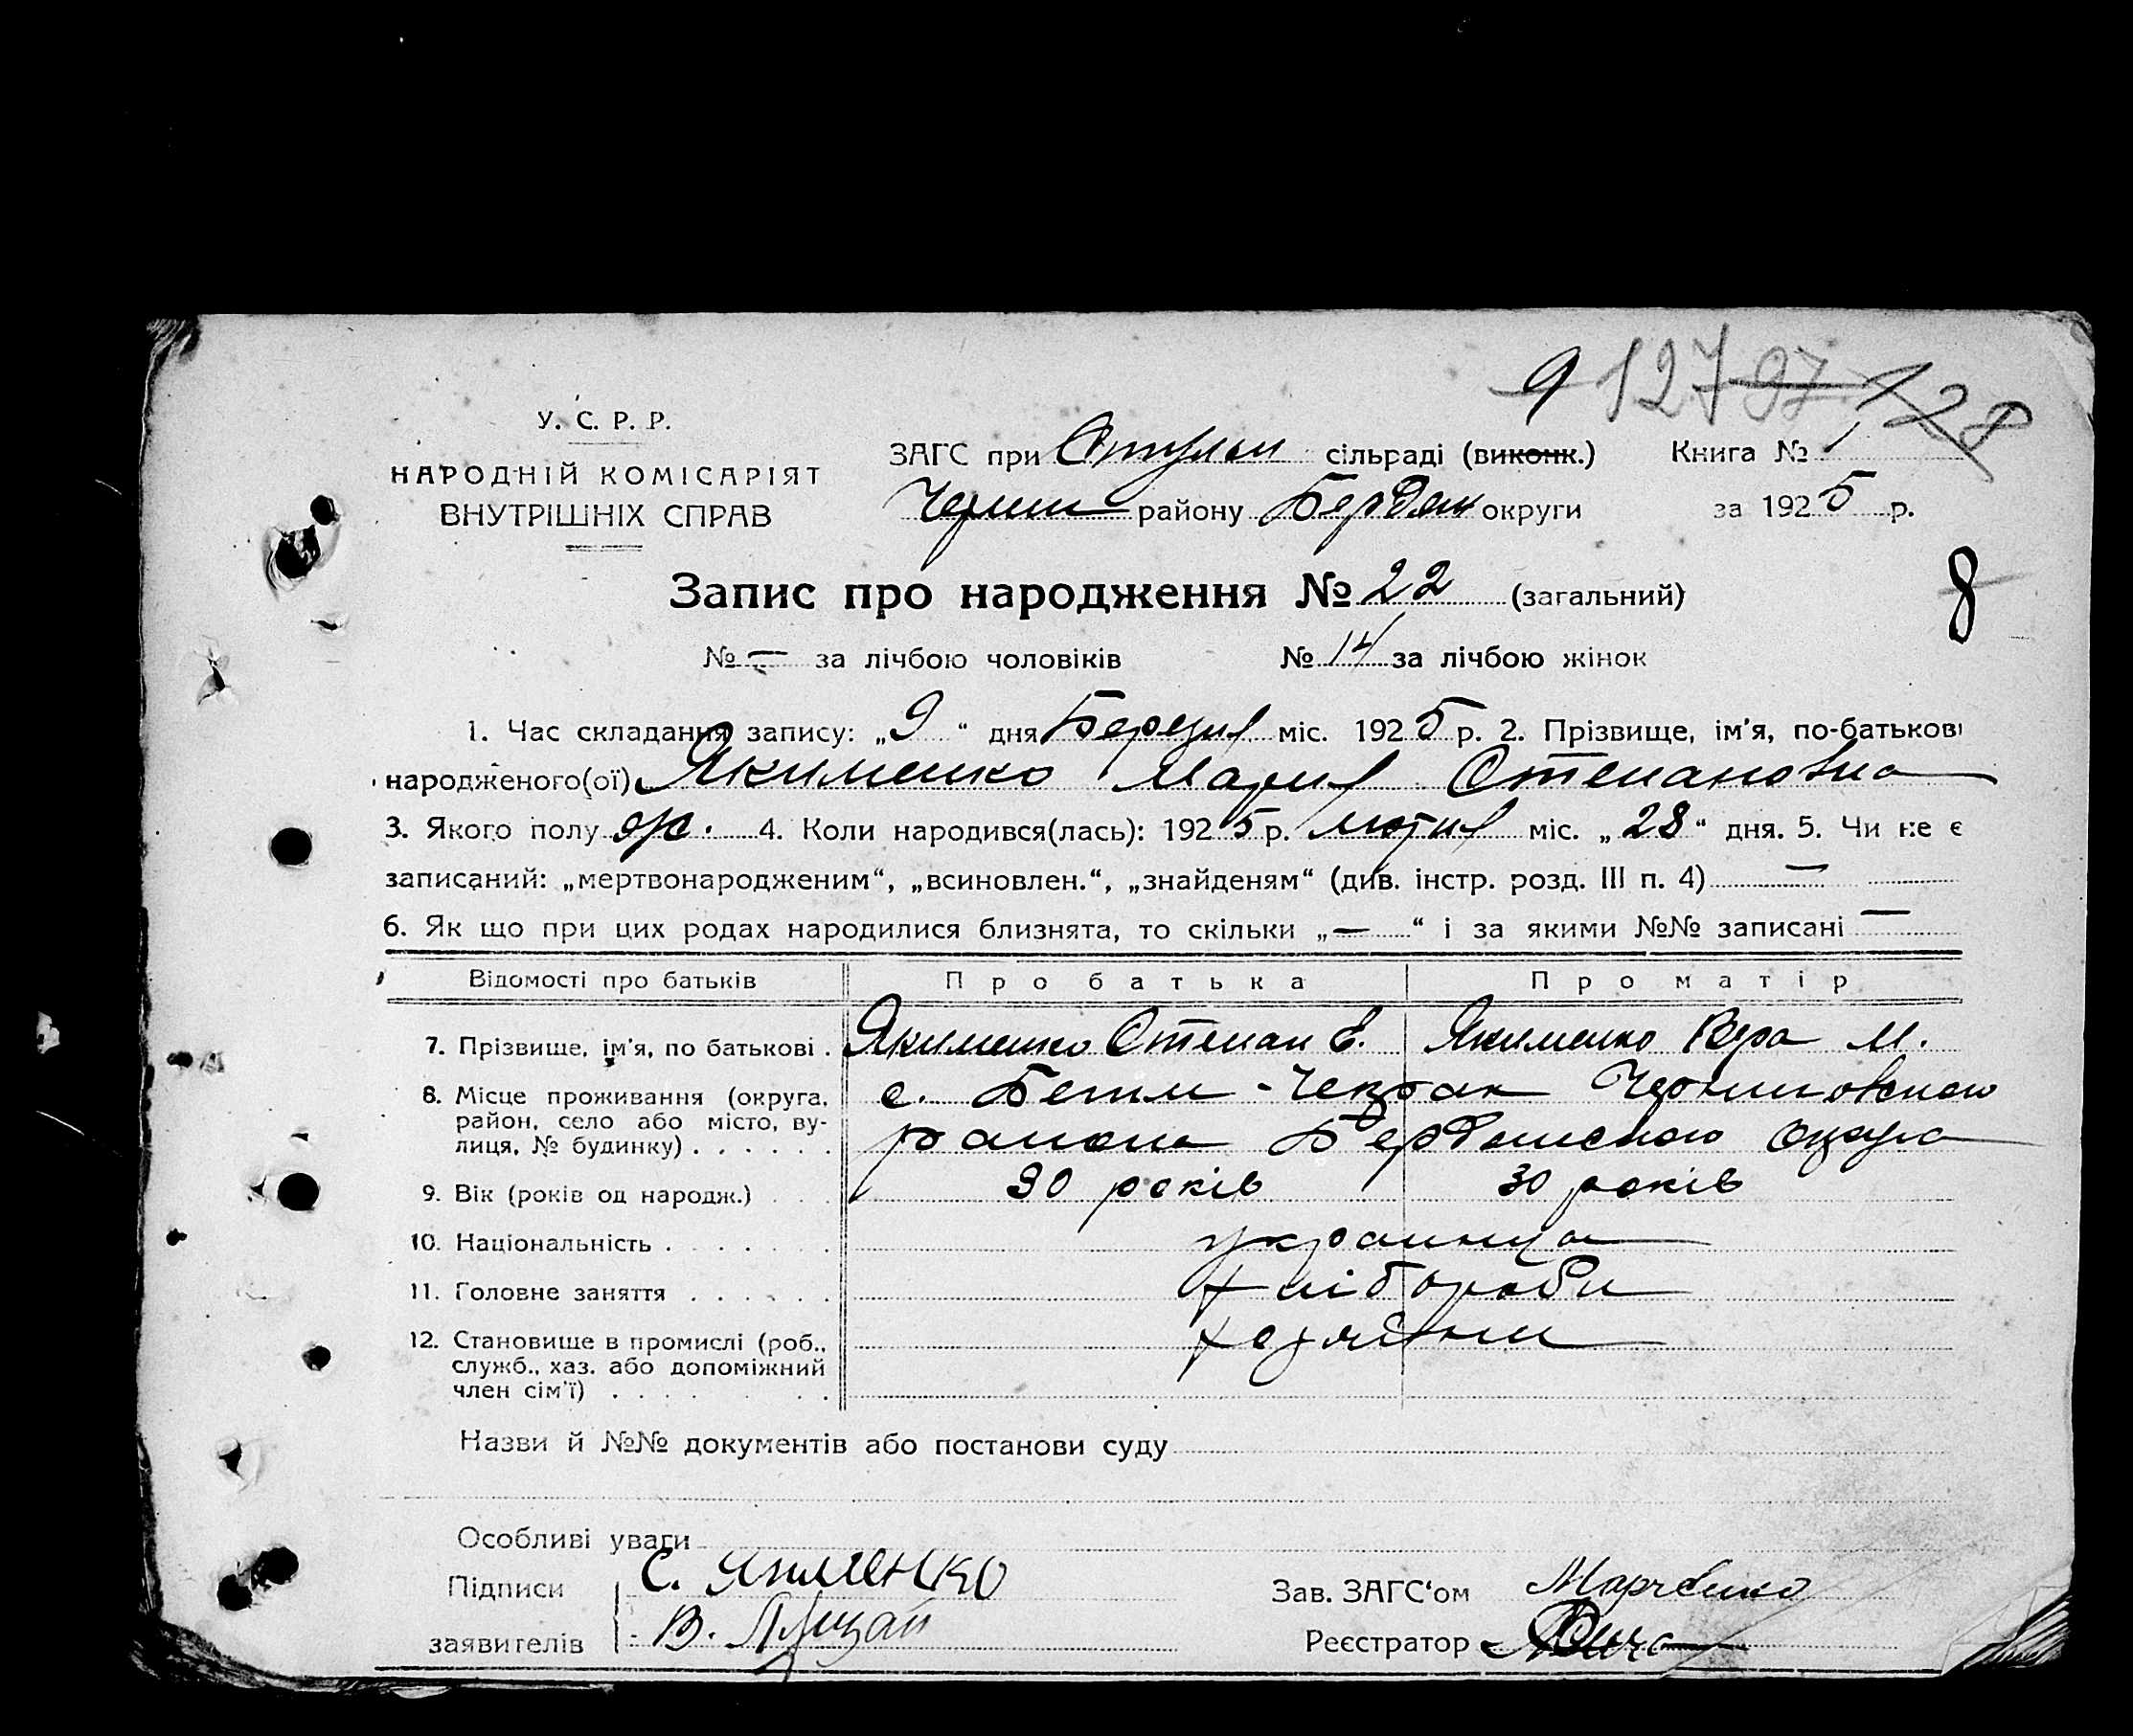 9 127 97 128
У. С. Р. Р.
НАРОДНІЙ КОМІСАРІЯТ
ВНУТРІШНІХ СПРАВ
ЗАГС при сільраді (виконк.) Книга № 1
Черниг району Бердян округи за 1925 р.
8
Запис про народження № 22 (загальний)
№ — за лічбою чоловіків № 14 за лічбою жінок
1. Час складання запису: „9“ дня Березня міс. 1925 р. 2. Прізвище, ім'я, по-батькові
народженого(ої) Якименко Мария Степановна
3. Якого полу ж. 4. Коли народився(лась): 1925 р. лютня міс. „28“ дня. 5. Чи не є
записаний: „мертвонародженим“, „всиновлен.“, „знайденям“ (див. інстр. розд. III п. 4) —
6. Як що при цих родах народилися близнята, то скільки „—“ і за якими №№ записані —
Відомості про батьків Про батька Про матір
7. Прізвище, ім'я, по батькові . Якименко Степан Е. Якименко Вера М.
8. Місце проживання (округа, район, село або місто, вулиця, № будинку) . . . . . .
с. Черниговского
района Бердянского округа
9. Вік (років од народж.) . . . 30 років 30 років
10. Національність . . . . . . . украинца
11. Головне заняття . . . . . . хлібороби
12. Становище в промислі (роб., служб., хаз. або допоміжний член сім'ї) . . . . . .
Назви й №№ документів або постанови суду
Особливі уваги
Підписи С. Якименко Зав. ЗАГС'ом Марченко
заявителів В. Реєстратор